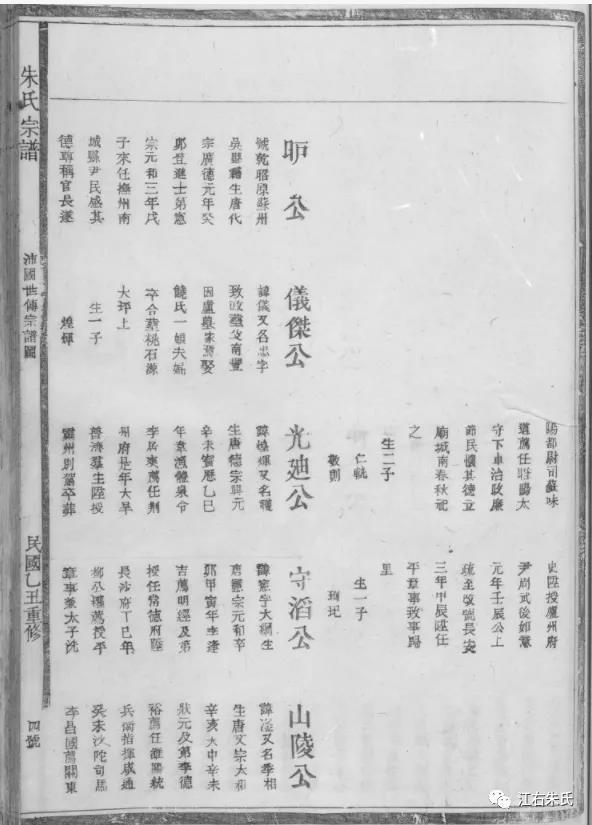 公
號乾昭原蘇州
吳縣籍生唐代
宗廣德元年癸
卯登進士第憲
宗元和三年戊
子來任撫州南
城縣尹民感其
德尊稱官長遂
儀傑公
諱儀又名忠字
致政葬父南豐
因盧墓家焉娶
饒氏一娘夫婦
卒合葬桃石源
大坪上
生一子
煌輝
陽都尉司蘇味
道薦任睢陽太
守下車治政廉
節民懷其德立
廟城南春秋祀
之
生二子
仁軌
敬則
光廸公
諱煌輝又名禋
生唐德宗興元
辛未寶曆乙巳
年韋渢體泉令
李居爽薦任荆
州府是年大旱
普濟羣生陞授
霍州別駕卒葬
史陞授廬州府
尹尚武後如意
元年壬辰公上
疏至改號長安
三年甲辰陞任
平章事致事歸
里
生一子
珣玘
守滔公
諱憲字大綱生
唐憲宗元和辛
卯甲寅年李逢
吉薦明經及第
授任常德府陞
長沙府丁巳年
柳公權薦授平
章事兼太子洗
山陵公
諱滏又名季相
生唐文宗太和
辛亥大中辛未
狀元及第李德
裕薦任淮陽統
兵衛指揮咸通
癸未沙陀司馬
李昌國薦關東
朱氏宗譜
沛國世傳宗譜圖
民國乙丑重修
四號
江右朱氏